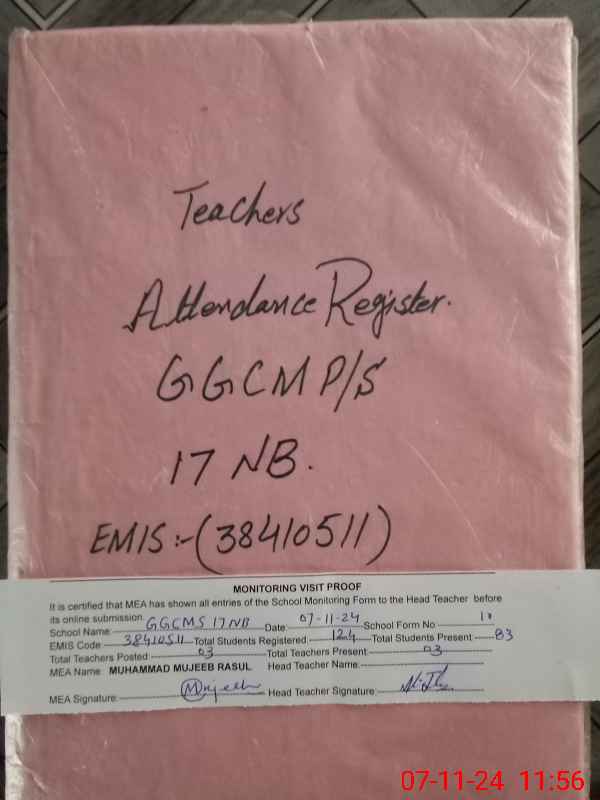 Teachers
Attendance Register.
GGCM P/S
17 NB.
EMIS:-(38410511)
MONITORING VISIT PROOF
It is certified that MEA has shown all entries of the School Monitoring Form to the Head Teacher before
its online submission
School Name: GGCMS 17 NB Date: 07-11-24 School Form No 10
EMIS Code: 38410511 Total Students Registered: 124 Total Students Present 83
Total Teachers Posted: 03 Total Teachers Present: 03
MEA Name: MUHAMMAD MUJEEB RASUL Head Teacher Name:
MEA Signature: Mujeeb Head Teacher Signature:
07-11-24 11:56